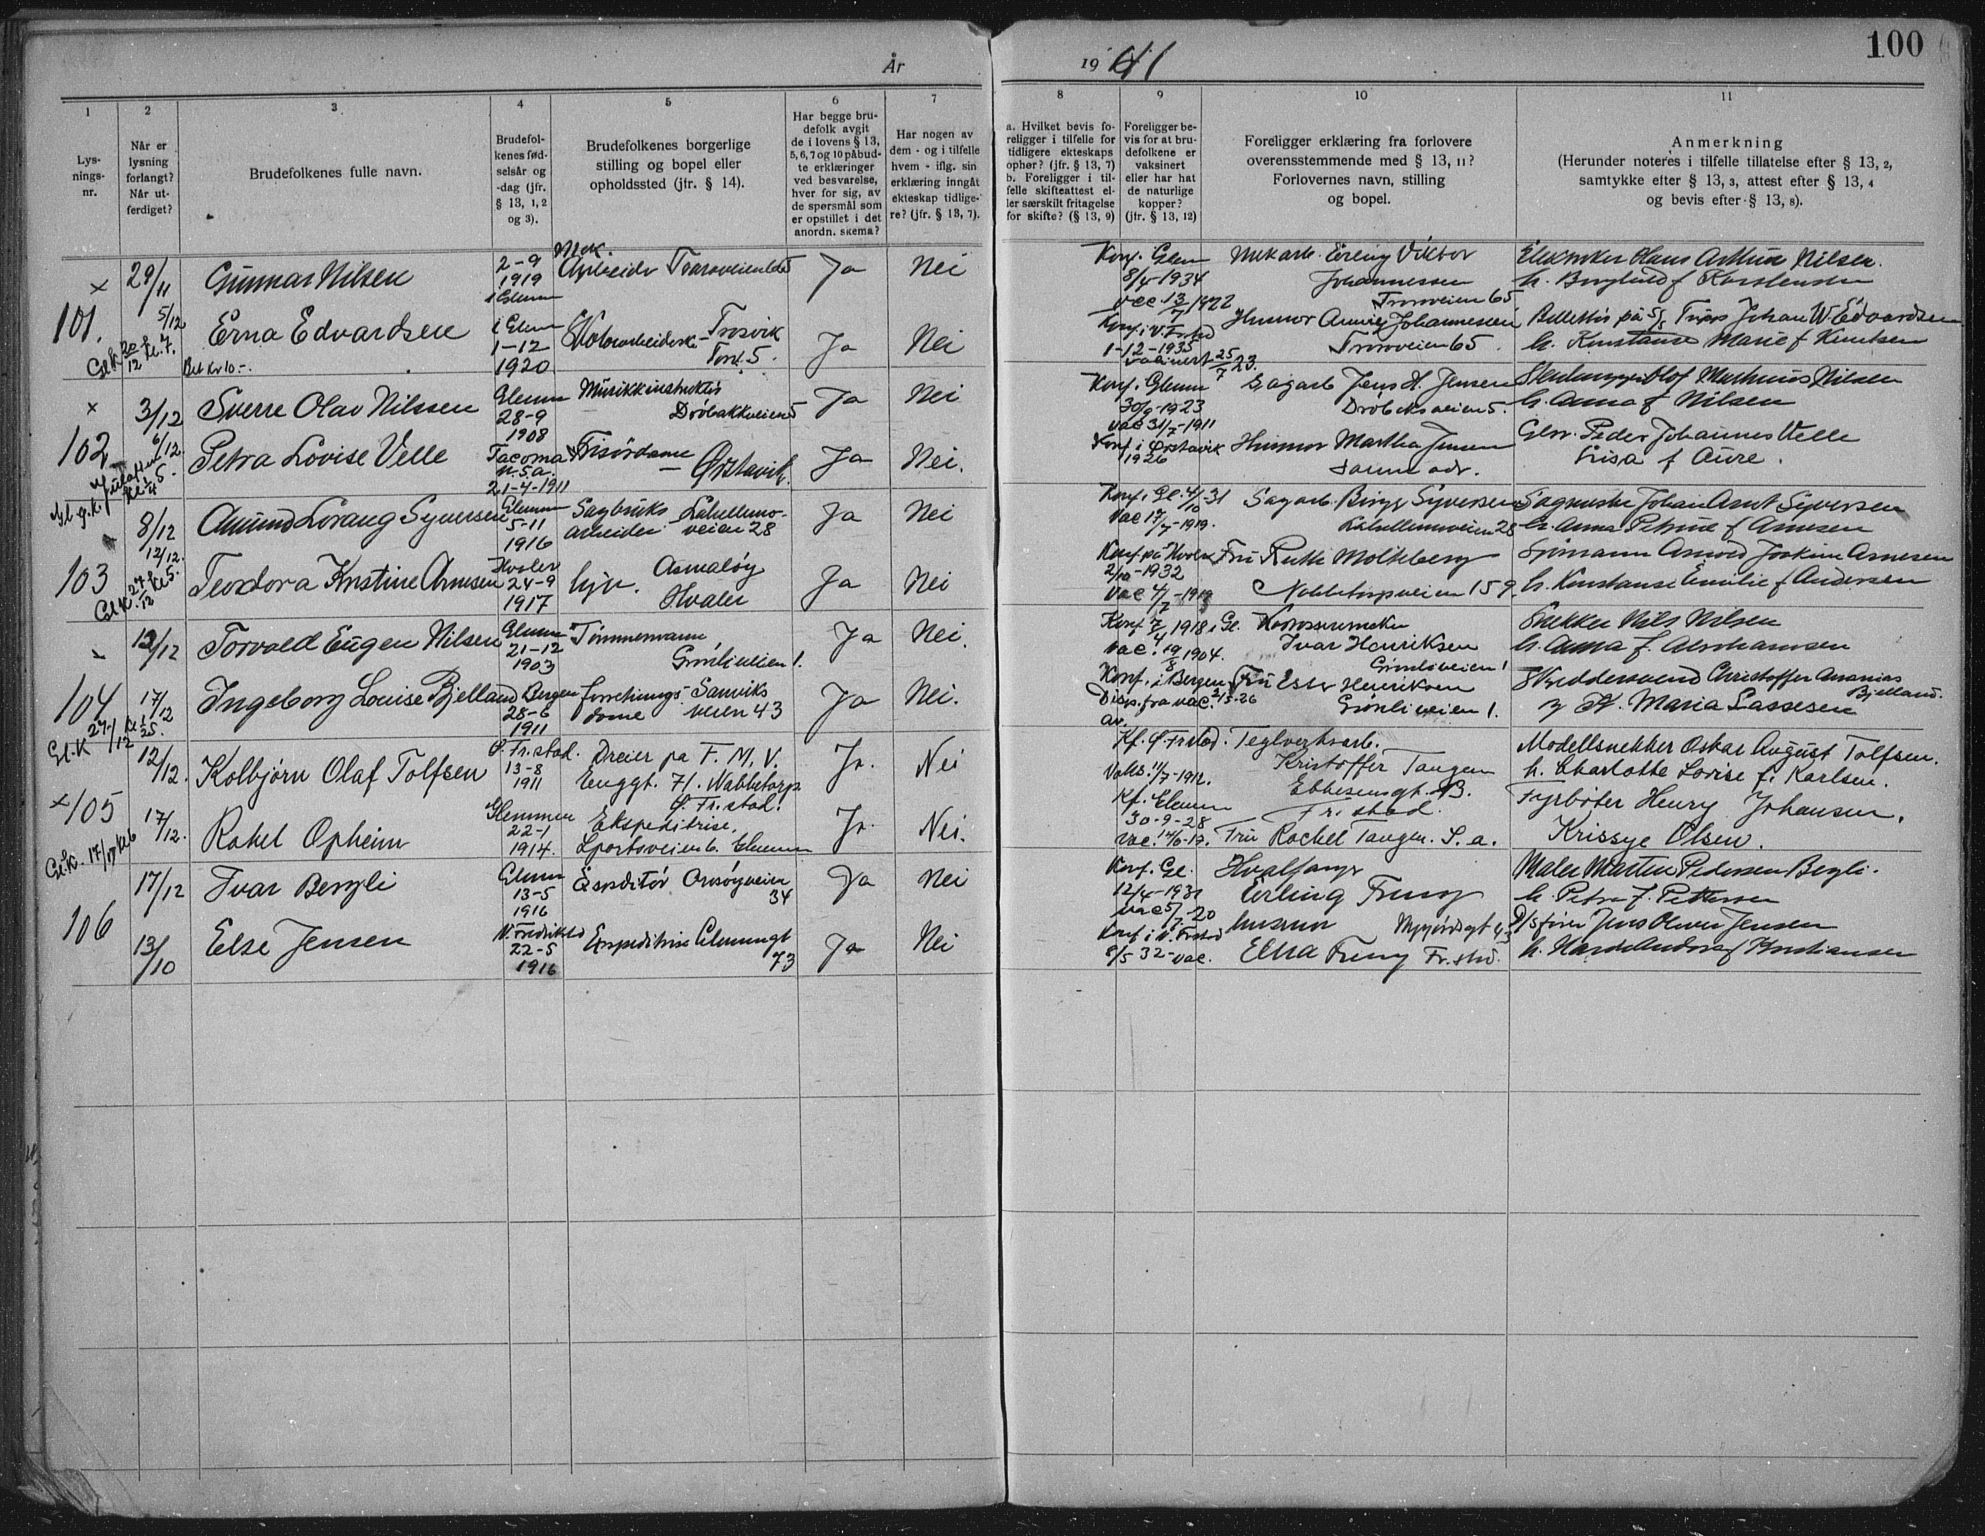 År
19 41
100
1
2
3
4
5
6
7
8
9
10
11
Lys-
nings-
nr.
Når er
lysning
forlangt?
Når ut-
ferdiget?
Brudefolkenes fulle navn.
Brudefol-
kenes fød-
selsår og
-dag (jfr.
§ 13, 1, 2
og 3).
Brudefolkenes borgerlige
stilling og bopel eller
opholdssted (jfr. § 14).
Har begge bru-
defolk avgit
de i lovens § 13,
5, 6, 7 og 10 påbud-
te erklæringer
ved besvarelse,
hver for sig, av
de spørsmål som
er opstillet i det
anordn. skema?
Har nogen av
dem - og i tilfelle
hvem - iflg. sin
erklæring inngått
ekteskap tidlige-
re? (jfr. § 13, 7).
a. Hvilket bevis fo-
religger i tilfelle for
tidligere ekteskaps
ophør? (jfr. § 13, 7)
b. Foreligger i til-
felle skifteattest el-
ler særskilt fritagelse
for skifte? (§ 13, 9)
Foreligger be-
vis for at bru-
defolkene er
vaksinert
eller har hat
de naturlige
kopper?
(jfr. § 13, 12)
Foreligger erklæring fra forlovere
overensstemmende med § 13, 11?
Forlovernes navn, stilling
og bopel.
Anmerkning
(Herunder noteres i tilfelle tillatelse efter § 13, 2,
samtykke efter § 13, 3, attest efter § 13, 4
og bevis efter § 13, 8).
x
101.
29/11
5/12
Gunnar Nilsen
2-9
1919
i Glemm
Mek.
Arbeider
Ja
Nei
Konf. i Glem
8/4-1934
vac 13/7 1922
Mek arb. Erling Viktor
Johannessen
Trosveien 65
Hans Arthur Nilsen.
h. Borghild f Karstensen
Gl.K 20/12 kl. 7.
Bet Kr 10-.
Erna Edvardsen
i Glem
1-12
1920
Trosvik
Torv. 5.
Ja
Nei
Konf. i V. Frstad
1-12-1935
25/7 23.
Husmor Annie Johannesen
Trosveien 65.
Johan W. Edvardsen
h. Konstanse Marie f Knutsen
x
102
3/12
6/12.
Sverre Olav Nilssen
Glemm
28-9
1908
Musikkinstruktør
Drøbakkveien 5
Ja
Nei
Konf. Glemm
30/9-1923
vac 31/7-1911
Sagarb Jens H. Jensen
Drøbakveien 5.
Olof Mathius Nilsen
h. Anna f Nilsen
Julaften
kl. 5.
Petra Lovise Velle
Tacoma
U.S.A.
21-4-1911
Frisørdame
— Ørstavik
Ja
Nei.
Konf. i Ørstavik
1926
Husmor Martha Jensen
samme adr.
Peder Johannes Velle
Lisa f Aure.
103
8/12
12/12.
Amund Lorang Syversen
Glemm
5-11
1916
Sagbruks
arbeider
Labellmo-
veien 28
Ja
Nei
Konf. i Gl. 4/10-31
vac 17/7-1919.
Sagarb. Birger Syversen
Labellmoveien 28
Johan Arnt Syversen
h. Anna Petrine f Arnesen
Gl.K. 27/12 kl 5.
Teodora Kristine Arnesen
Hvaler
24-9
1917
hjv.
Asmaløy
Hvaler
Ja
Nei
Konf på Hvaler
2/10-1932
vac 4/7-1919
Fru Ruth Moltzberg
Nabbetorpveien 159.
Sjømann Arnold Joakim Arnesen
h. Konstanse Emilie f Andersen
104
12/12
17/12
Torvald Eugen Nilsen
Glemm
21-12
1903
Tømmermann
Grønliveien 1.
Ja
Nei.
Konf 7/4 1918 i Gl.
vac. 19/8 1904.
Ivar Henriksen
Grønliveien 1
Snekker Nils Nilsen
h. Anna f. Abrahamsen
Gl.K 27/12
Ingeborg Louise Bjelland
Bergen
28-6
1911
forretnings-
dame
Sanviks
veien 43
Ja
Nei.
Konf. i Bergen
Disp. fra vac. 2/5-26
Fru Ester Henriksen
Grønliveien 1.
Skreddersvend Christoffer Ananias
Bjelland.
Maria Lassesen
x 105
12/12.
17/12.
Kolbjørn Olaf Tolfsen
Ø. Fr.stad.
13-8
1911
Dreier på F. M. V.
Enggt. 71. Nabbetorp
Ø. Fr.stad.
Ja.
Nei
Kf. Ø. Fr.stad.
Vaks. 11/7-1912.
Teglverksarb.
Kristoffer Tangen
Ebbesensgt. 13.
Fr.stad.
Modellsnekker Oskar August Tolfsen.
h. Charlotte Lovise f. Karlsen.
Gl.K. 17/12 kl 6
Rakel Opheim
Glemmen
22-1
1914.
Ekspeditrise,
Sportsveien 6. Glemm
Ja.
Nei.
Kf. Glemm
30-9-28
Fru Rachel Tangen. S. a.
Fyrbøter Henry Johansen,
Krissye Olsen.
106
17/12
13/10
Ivar Bergli
Glemm
13-5
1916
Expeditør
34
Ja
Nei
Konf. Gl.
12/4-1931
vac 5/7-20
Hvalfanger
Erling Freng
Maler Martin Pedersen Bergli.
h. Petra f. Pettersen
Else Jensen
V. Fredrikstd
22-5
1916
Expeditrise Glemmengt
73
Ja
Nei
Konf i V. Frstad
8/5 32-vac.
Elna Freng Fr.stad.
D/sfører Jens Oliver Jensen
f Kristiansen